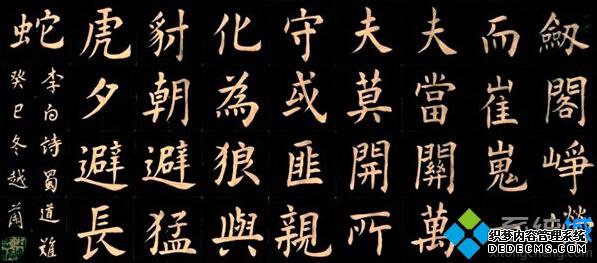 劔閣崢嶸
而崔嵬一
夫當關萬
夫莫開所
守或匪親
化為狼與
豺朝避猛
虎夕避長
蛇
李白詩蜀道難
癸巳冬越
织梦内容管理系统
DEDECMS.COM